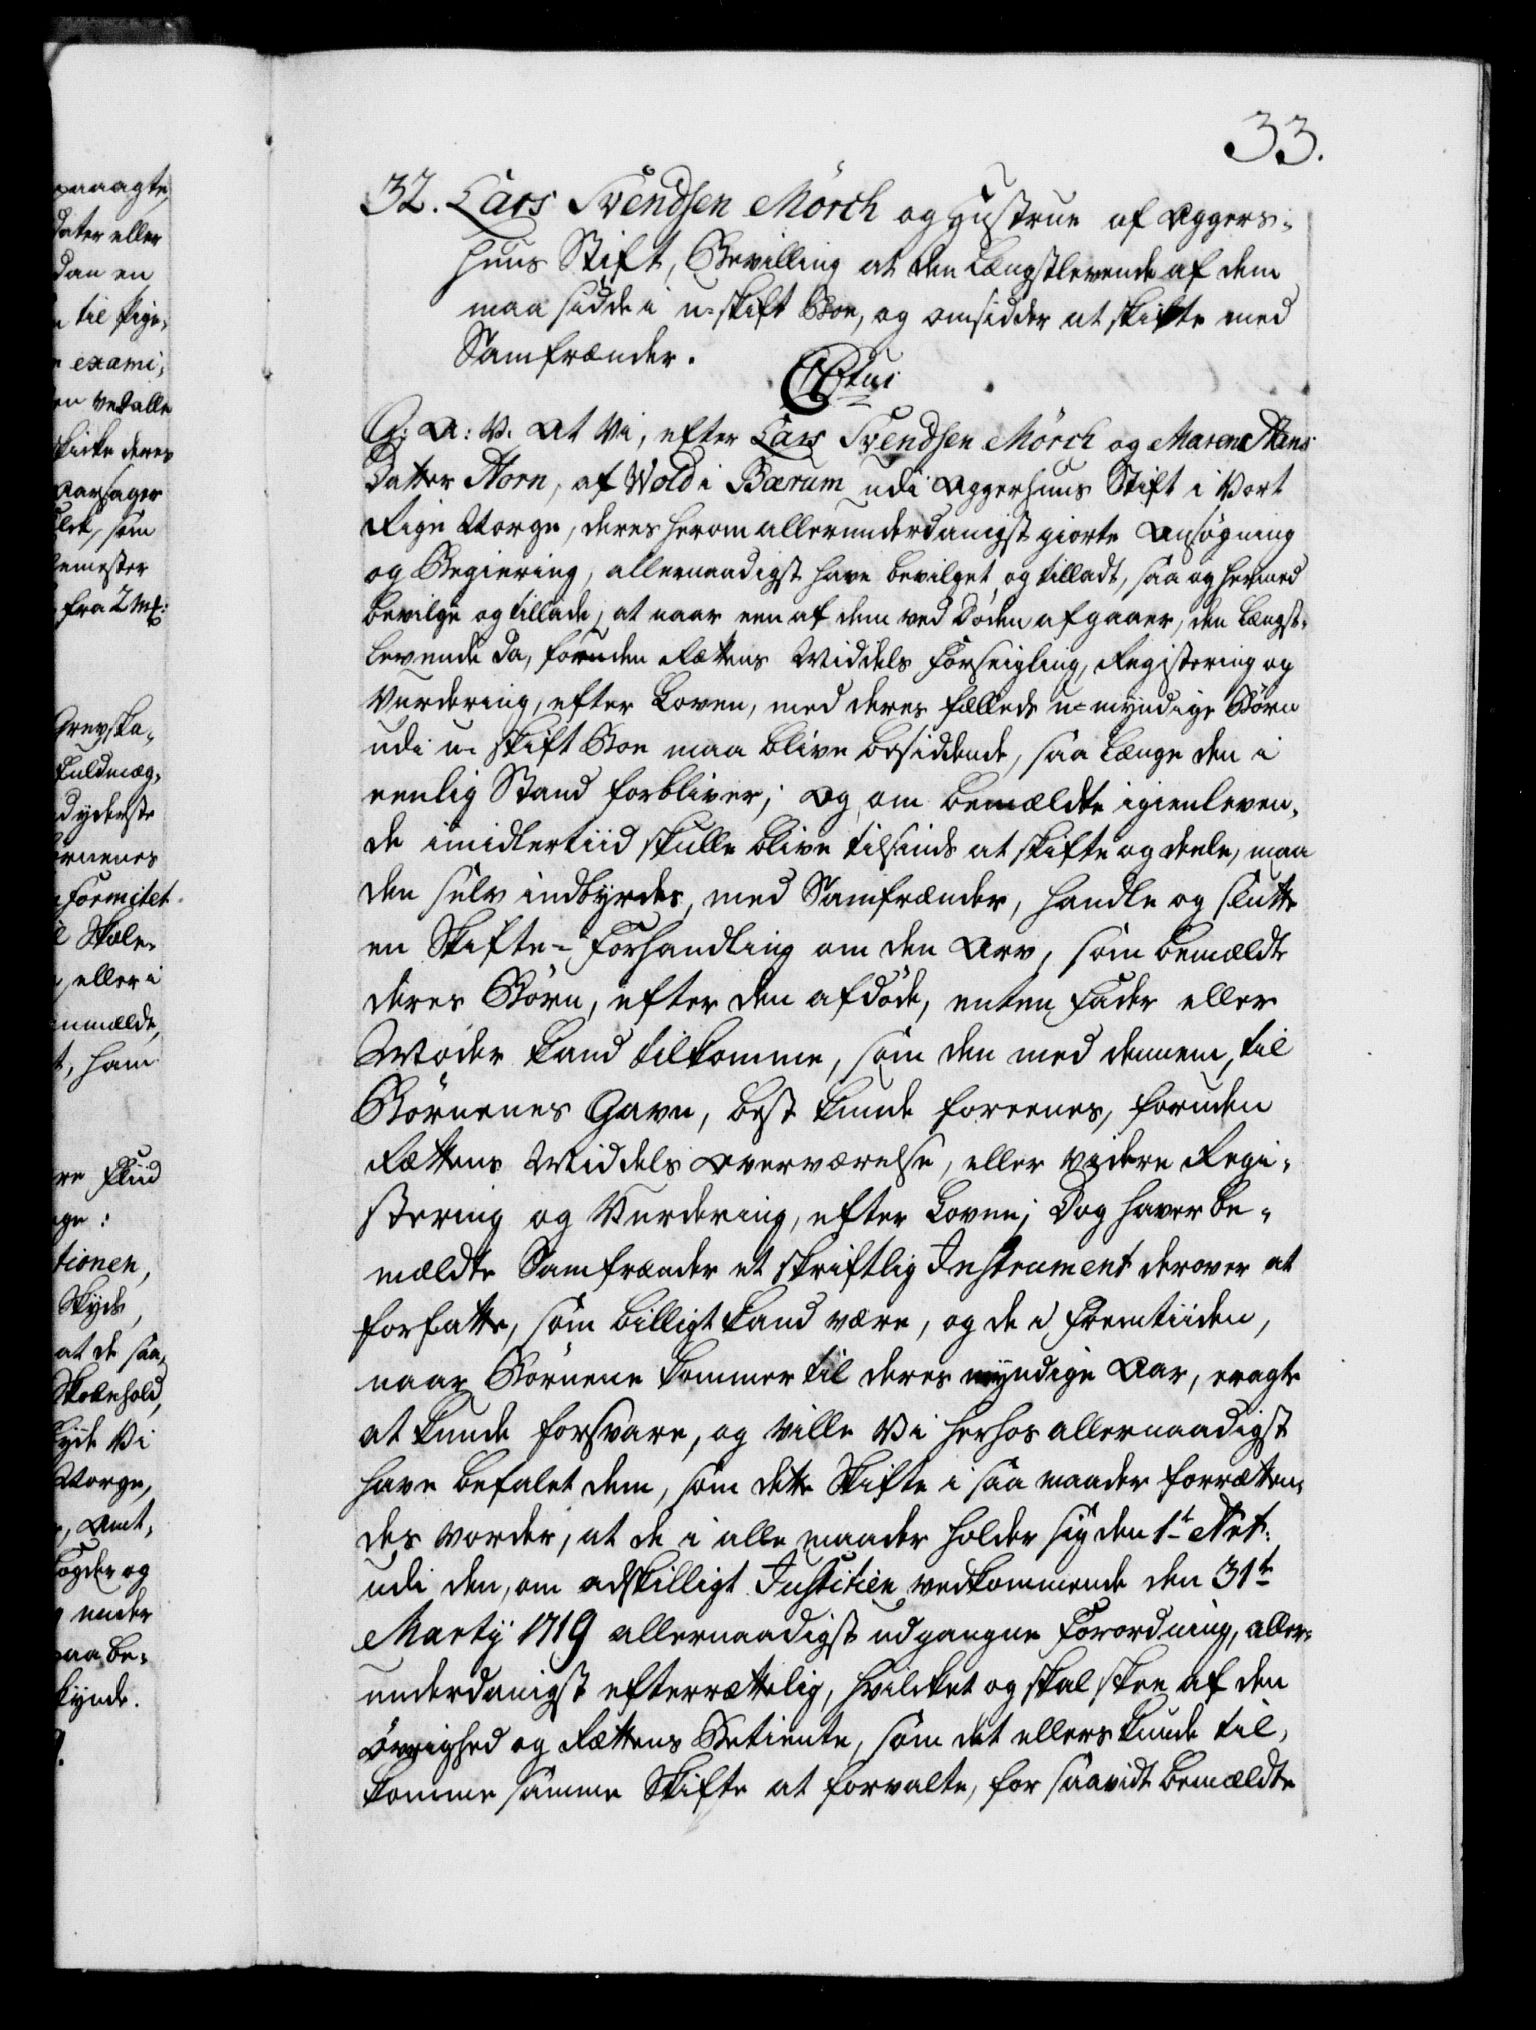 33.
32. Lars Svendsen Mörch og Hustrue af Aggers-
huus Stift, Bevilling at den Længstlevende af dem
maa sidde i u-skift Boe, og omsidder at skifte med
Samfrænder.
G: A: V. At Vi, efter Lars Svendsen Mörch og Maren Hans
Datter Horn, af Wold i Bærum udi Aggerhuus Stift i Vort
Rige Norge, deres herom allerunderdanigst giorte Ansögning
og Begiering, allernaadigst have bevilget og tilladt, saa og hermed
bevilge og tillade, at naar een af dem ved Döden afgaaer, den Længst-
levende da, foruden Rettens Middels Forseigling, Registering og
Vurdering, efter Loven, med deres fælleds u-myndige Börn
udi u-skift Boe maa blive besiddende, saa længe den i
eenlig Stand forbliver; Og om bemældte igienleven-
de imidlertiid skulle blive tilsinds at skifte og deele, maa
den selv indbyrdes, med Samfrænder, handle og slutte
en Skifte-Forhandling om den Arv, som bemældte
deres Börn, efter den afdöde, enten Fader eller
Moder kand tilkomme, som den med dennem, til
Börnenes Gavn, best kunde foreenes, foruden
Rettens Middels Overværelse, eller videre Regi-
stering og Vurdering, efter Loven; Dog haver be-
mældte Samfrænder et skriftlig Instrument derover at
forfatte, som billigt kand være, og de i Fremtiiden,
naar Börnene kommer til deres myndige Aar, eragte
at kunde forsvare, og ville Vi herhos allernaadigst
have befalet dem, som dette Skifte i saa maader forretten-
des vorder, at de i alle maader holder sig den 1t Art:
udi den, om adskilligt Justitien vedkommende den 31te
Martij 1719 allernaadigst udgangne Forordning, aller-
underdanigst efterrettelig, hvilcket og skal skee af den
Övrighed og Rettens Betiente, som det ellers kunde til-
komme samme Skifte at forvalte, for saavidt bemældte